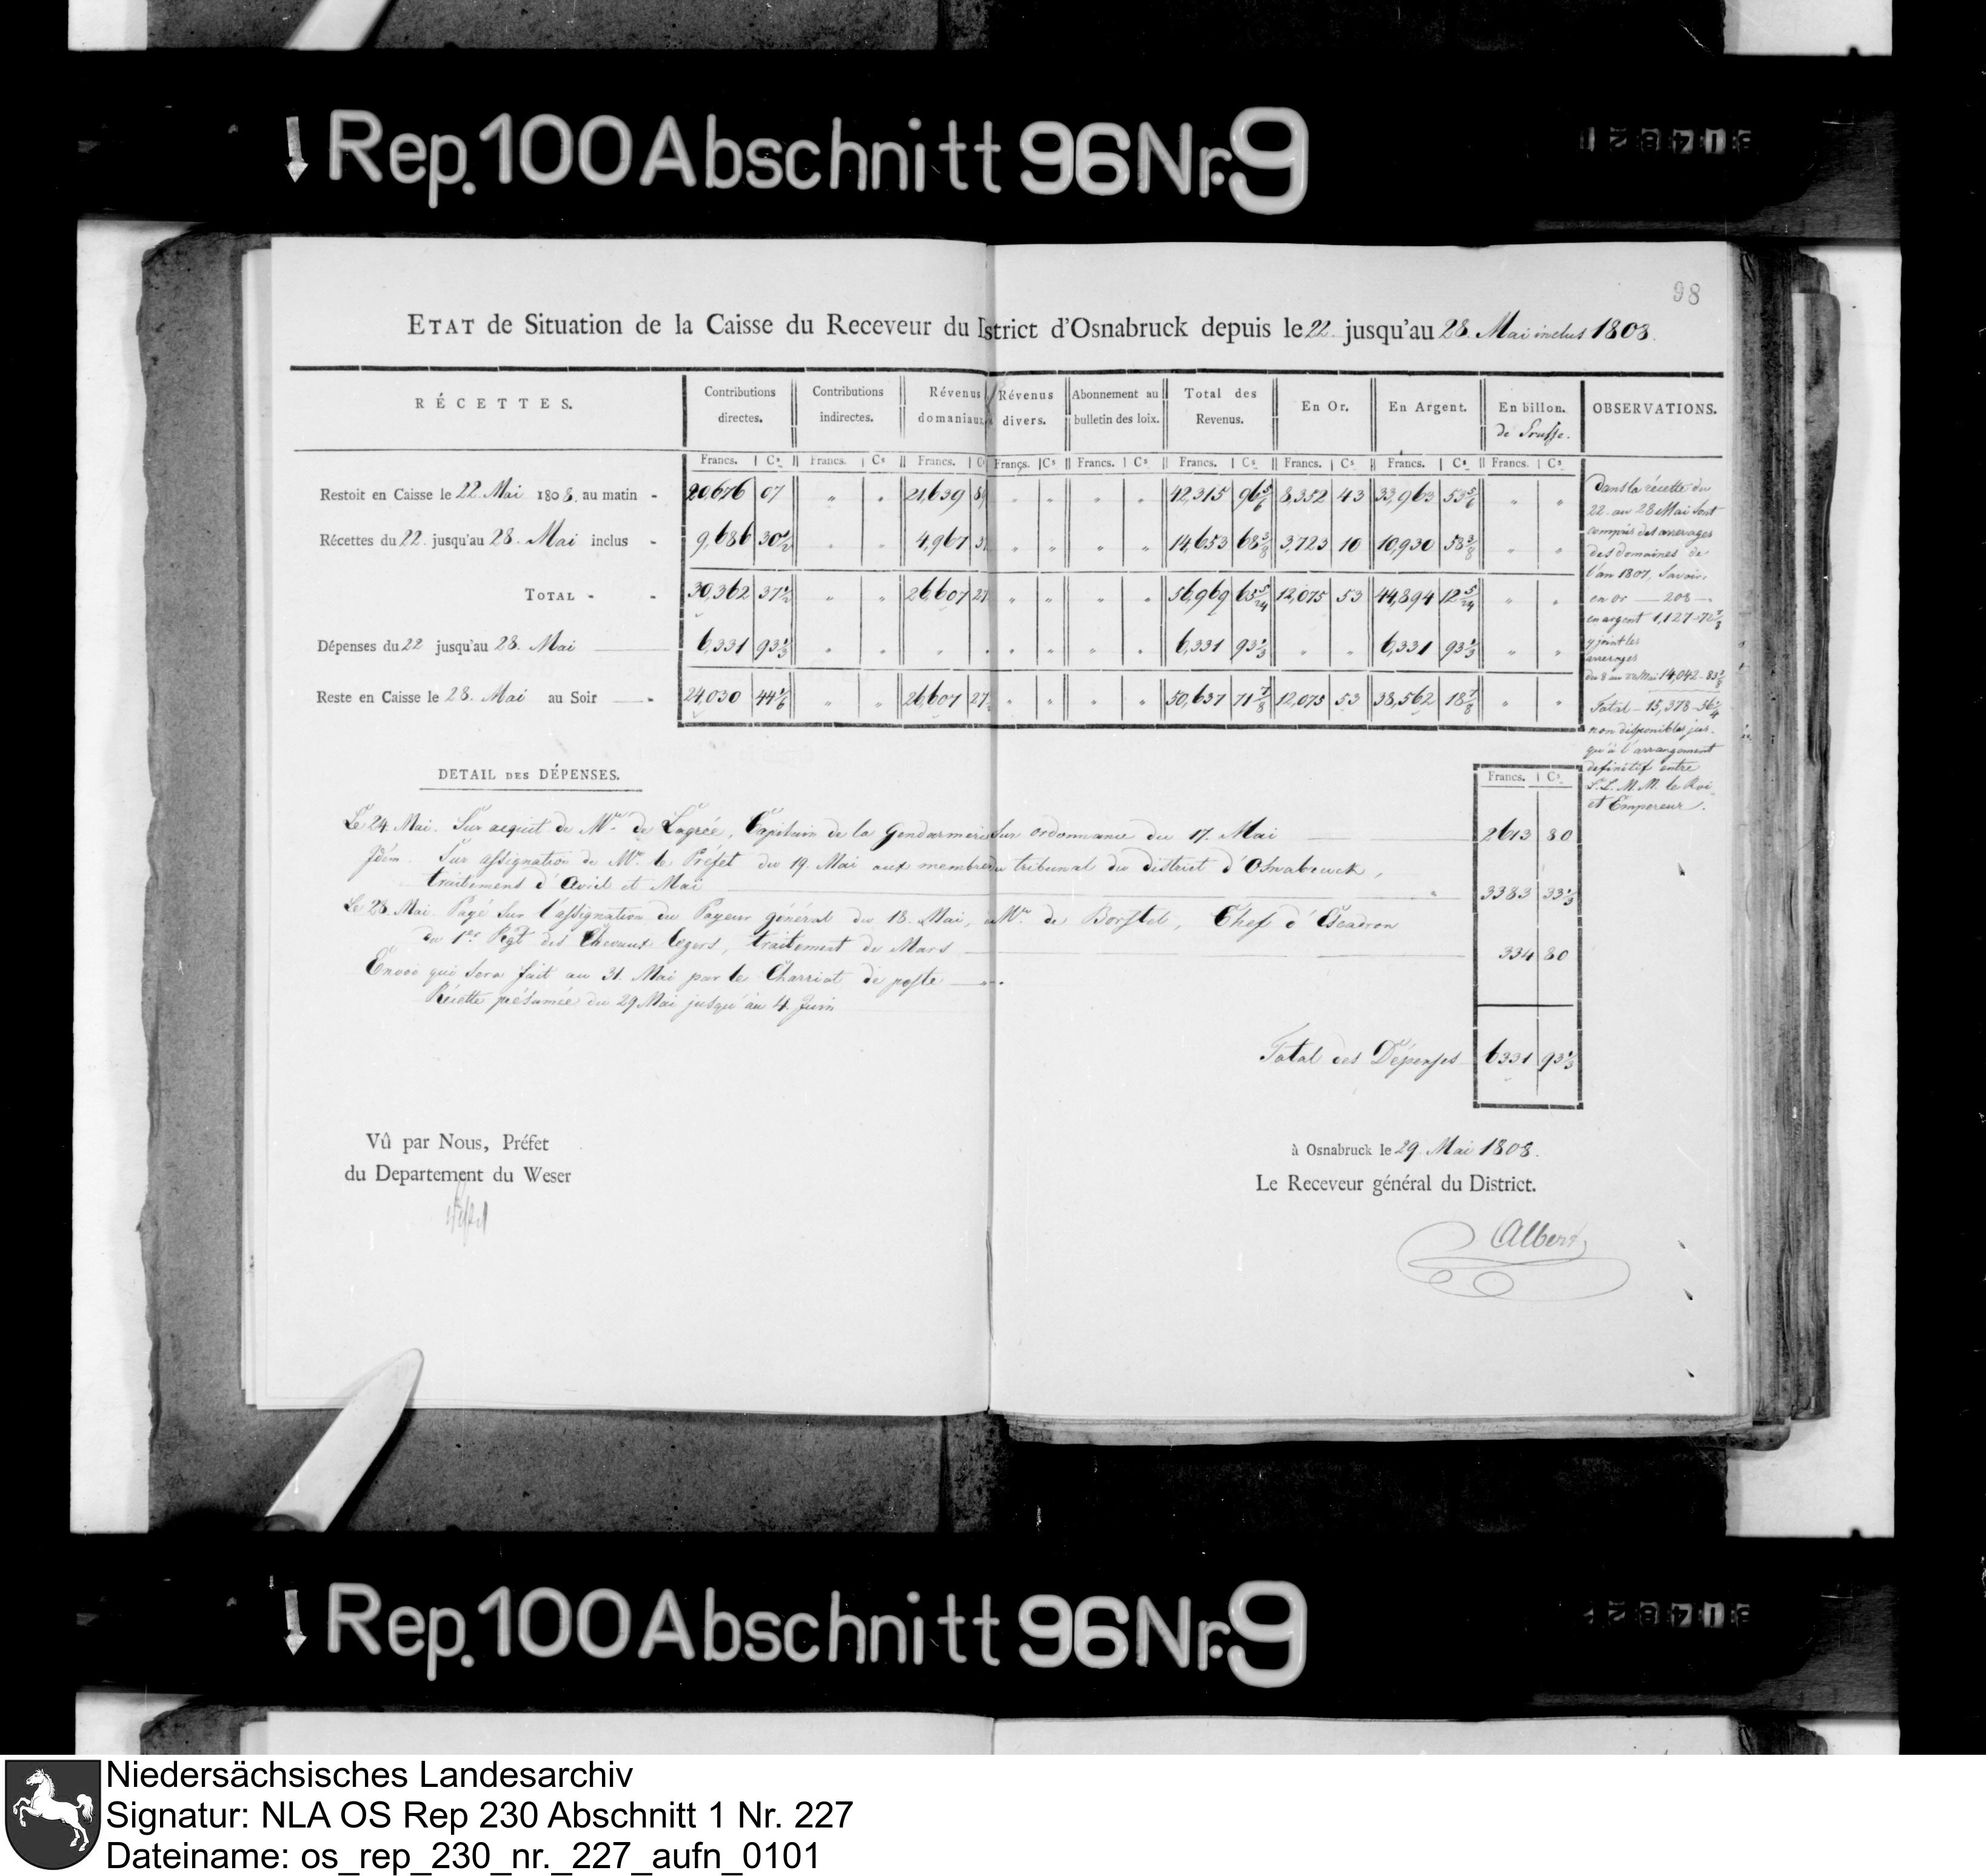 Rep. 100 Abschnitt 96 Nr. 9
98
ETAT de Situation de la Caisse du Receveur du District d'Osnabruck depuis le 22. jusqu'au 28. Mai inclus 1808.
RÉCETTES. Contributions directes. Contributions indirectes. Révenus domaniaux Révenus divers. Abonnement au bulletin des loix. Total des Revenus. En Or. En Argent. En billon. de Prusse. OBSERVATIONS.
Francs. Cs. Francs. Cs Francs. Cs Francs. Cs Francs. Cs Francs. Cs Francs. Cs Francs. Cs Francs. Cs
Restoit en Caisse le 22. Mai 1808. au matin - 20,676 07 " " 21,639 89 " " " " 42,315 96 5/6 8,352 43 33,963 53 5/6 " "
Récettes du 22. jusqu'au 28. Mai inclus - 9,686 30 1/2 " " 4,967 3 " " " " 14,653 68 3/8 3,723 10 10,930 58 3/8 " "
TOTAL - - 30,362 37 1/2 " " 26,607 27 " " " " 56,969 65 5/24 12,075 53 44,894 12 5/24 " "
Dépenses du 22 jusqu'au 28. Mai 6,331 93 1/3 " " " " " " " " 6,331 93 1/3 " " 6,331 93 1/3 " "
Reste en Caisse le 28. Mai au Soir - 24,030 44 1/6 " " 26,607 27 " " " " 50,637 71 7/8 12,075 53 38,562 18 7/8 " "
Dans la récette du
22. au 28 Mai sont
compris des arrerages
des domaines de
l'an 1807, Savoir,
en or — 208 —
en argent 1,127-72 7/8
y joint les
arrerages
du 8 au 22 Mai 14,042-83 3/8
Total — 15,378-56 1/4
non disponibles jus-
qu'à l'arrangement
definitif entre
L.L. M.M. le Roi
et Empereur.
DETAIL DES DÉPENSES.
Francs. Cs
Le 24. Mai. Sur acquit de Mr. de Lagrée, Capitain de la Gendarmerie Sur ordonnance du 17. Mai 2613 80
Idem Sur assignation de Mr. le Préfet du 19. Mai aux membres du tribunal du district d'Osnabruck,
traitemens d'Avril et Mai " 3383 33 1/3
Le 28. Mai. Payé Sur l'assignation du Payeur général du 18. Mai, à Mr. de Borstel, Chef d'Escadron
du 1er Rgt des Chevaux legers, traitement de Mars 334 80
Envoi qui Sera fait au 31. Mai par le Charriot de poste
Récette présumée du 29 Mai jusqu'au 4. Juin
Total des Dépenses 6331 93 1/3
Vû par Nous, Préfet
du Departement du Weser
à Osnabruck le 29. Mai 1808.
Le Receveur général du District.
Albers
Rep. 100 Abschnitt 96 Nr. 9
Niedersächsisches Landesarchiv
Signatur: NLA OS Rep 230 Abschnitt 1 Nr. 227
Dateiname: os_rep_230_nr._227_aufn_0101